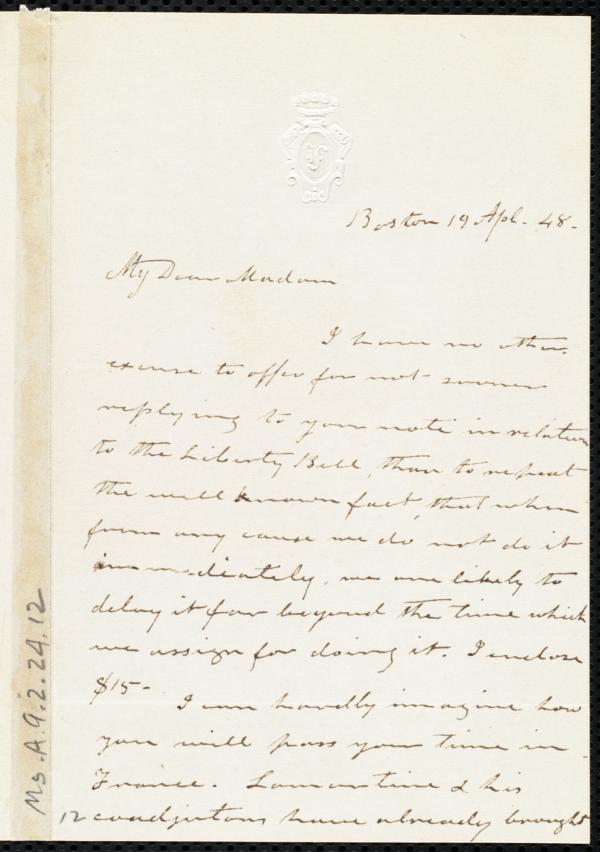 Boston 19 Apl. 48.
My Dear Madam
I have no other
excuse to offer for not sooner
replying to your note in relation
to the Liberty Bell, than to repeat
the well known fact, that when
from any cause we do not do it
immediately, we are likely to
delay it far beyond the time which
we assign for doing it. I enclose
$15-
I can hardly imagine how
you will pass your time in
France. Lamartine & his
coadjutors have already brought
12
Ms. A. 9. 2. 24. 12